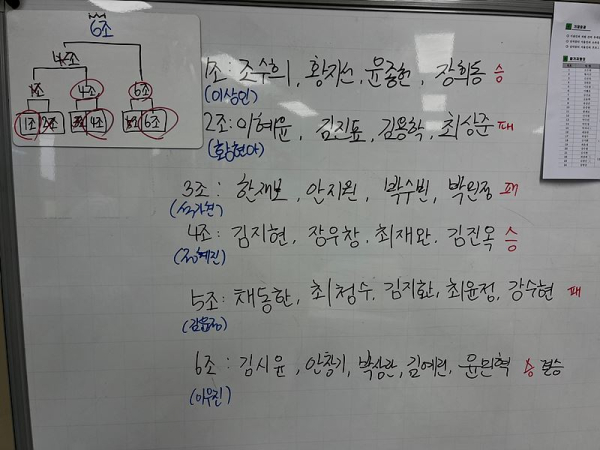 6조
4조
1조 4조 6조
1조 2조 3조 4조 5조 6조
1조: 조수희, 황지선, 윤종현, 장희동 승
(이상민)
2조: 이혜윤, 김진표, 김용학, 최상준 패
(황현아)
3조: 한재보, 안지원, 박수빈, 박원정 패
4조: 김지현, 장우창, 최재완, 김진옥 승
(정혜진)
5조: 채동한, 최청수, 김지환, 최윤정, 강수현 패
(김윤정)
6조: 김시윤, 안창기, 박상관, 김예련, 윤민혁 승 결승
(이우진)